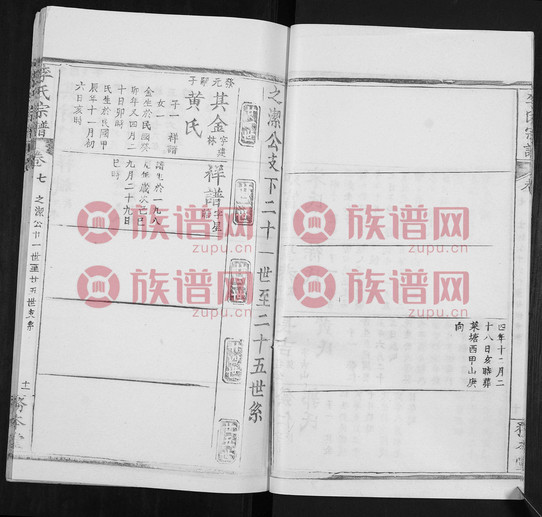 四年十二月二
十八日亥時葬
菜塘西甲山庚
向
之潔公支下二十一世至二十五世系
發元師子
其金
黄氏
子一 祥譜
女一
金生於民國癸
卯年又四月二
十日卯時
氏生於民國甲
辰年十一月初
六日亥時
祥譜
譜生於一九八
九年歲次己巳
九月二十九日
巳時
李氏宗譜
卷七
之潔公下廿一世至廿五世支系
十一
族谱网
zupu.cn
族谱网
zupu.cn
族谱网
zupu.cn
族谱网
zupu.cn
族谱网
zupu.cn
族谱网
zupu.cn